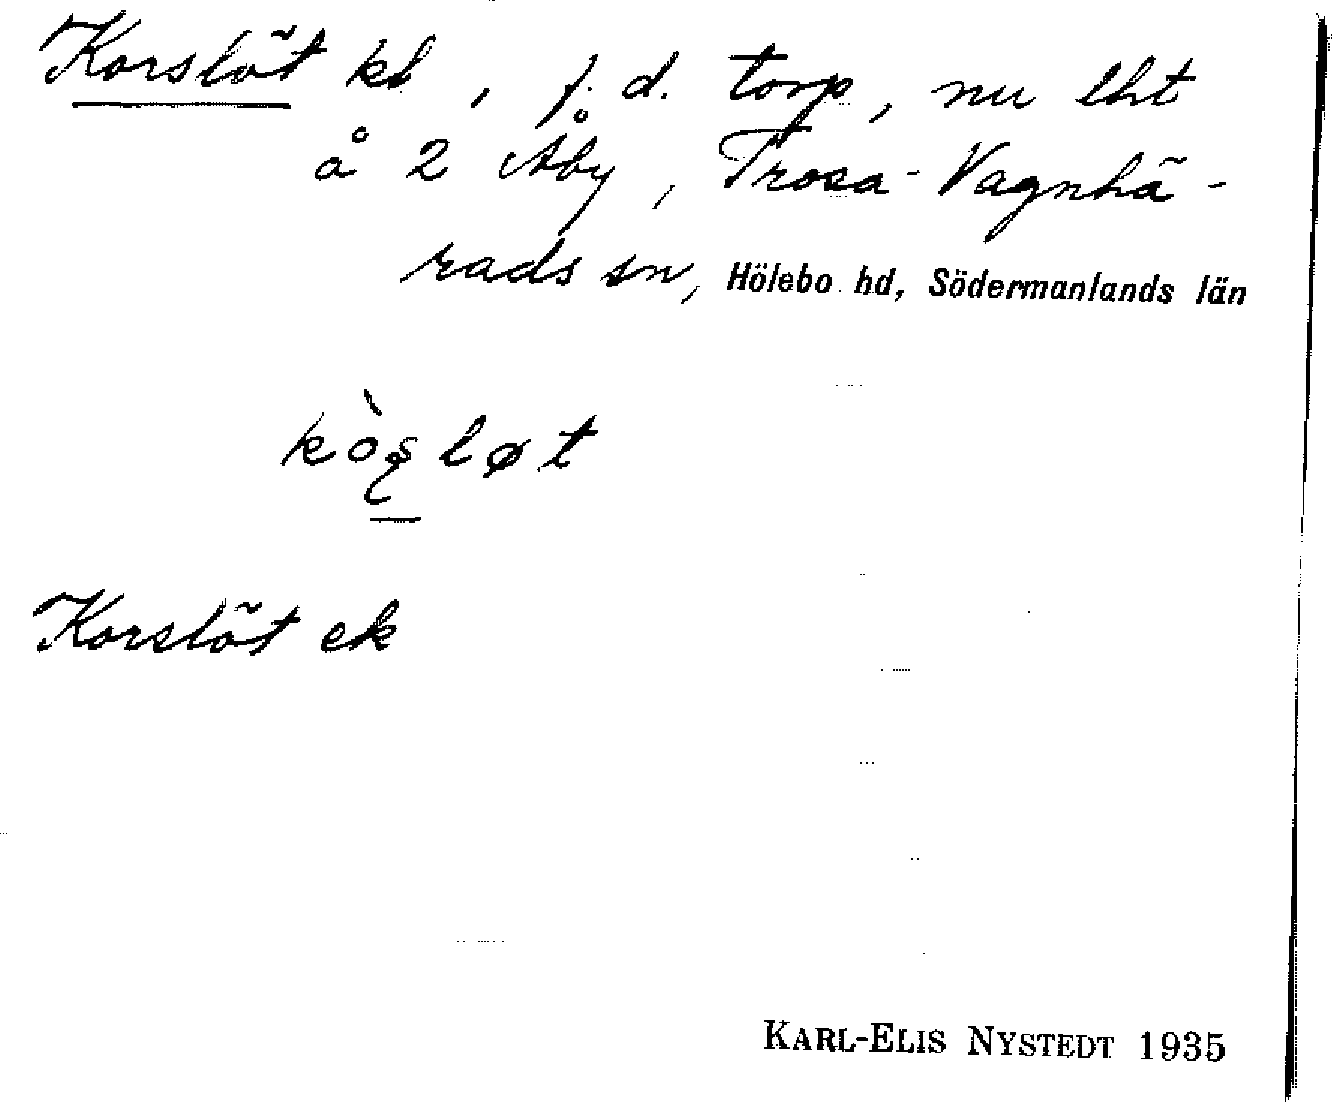 Korslöt kl, f.d. torp, nu lht
å 2 Åby, Trosa-Vagnhä-
rads sn, Hölebo hd, Södermanlands län
kòs̱løt
Korslöt ek
KARL-ELIS NYSTEDT 1935